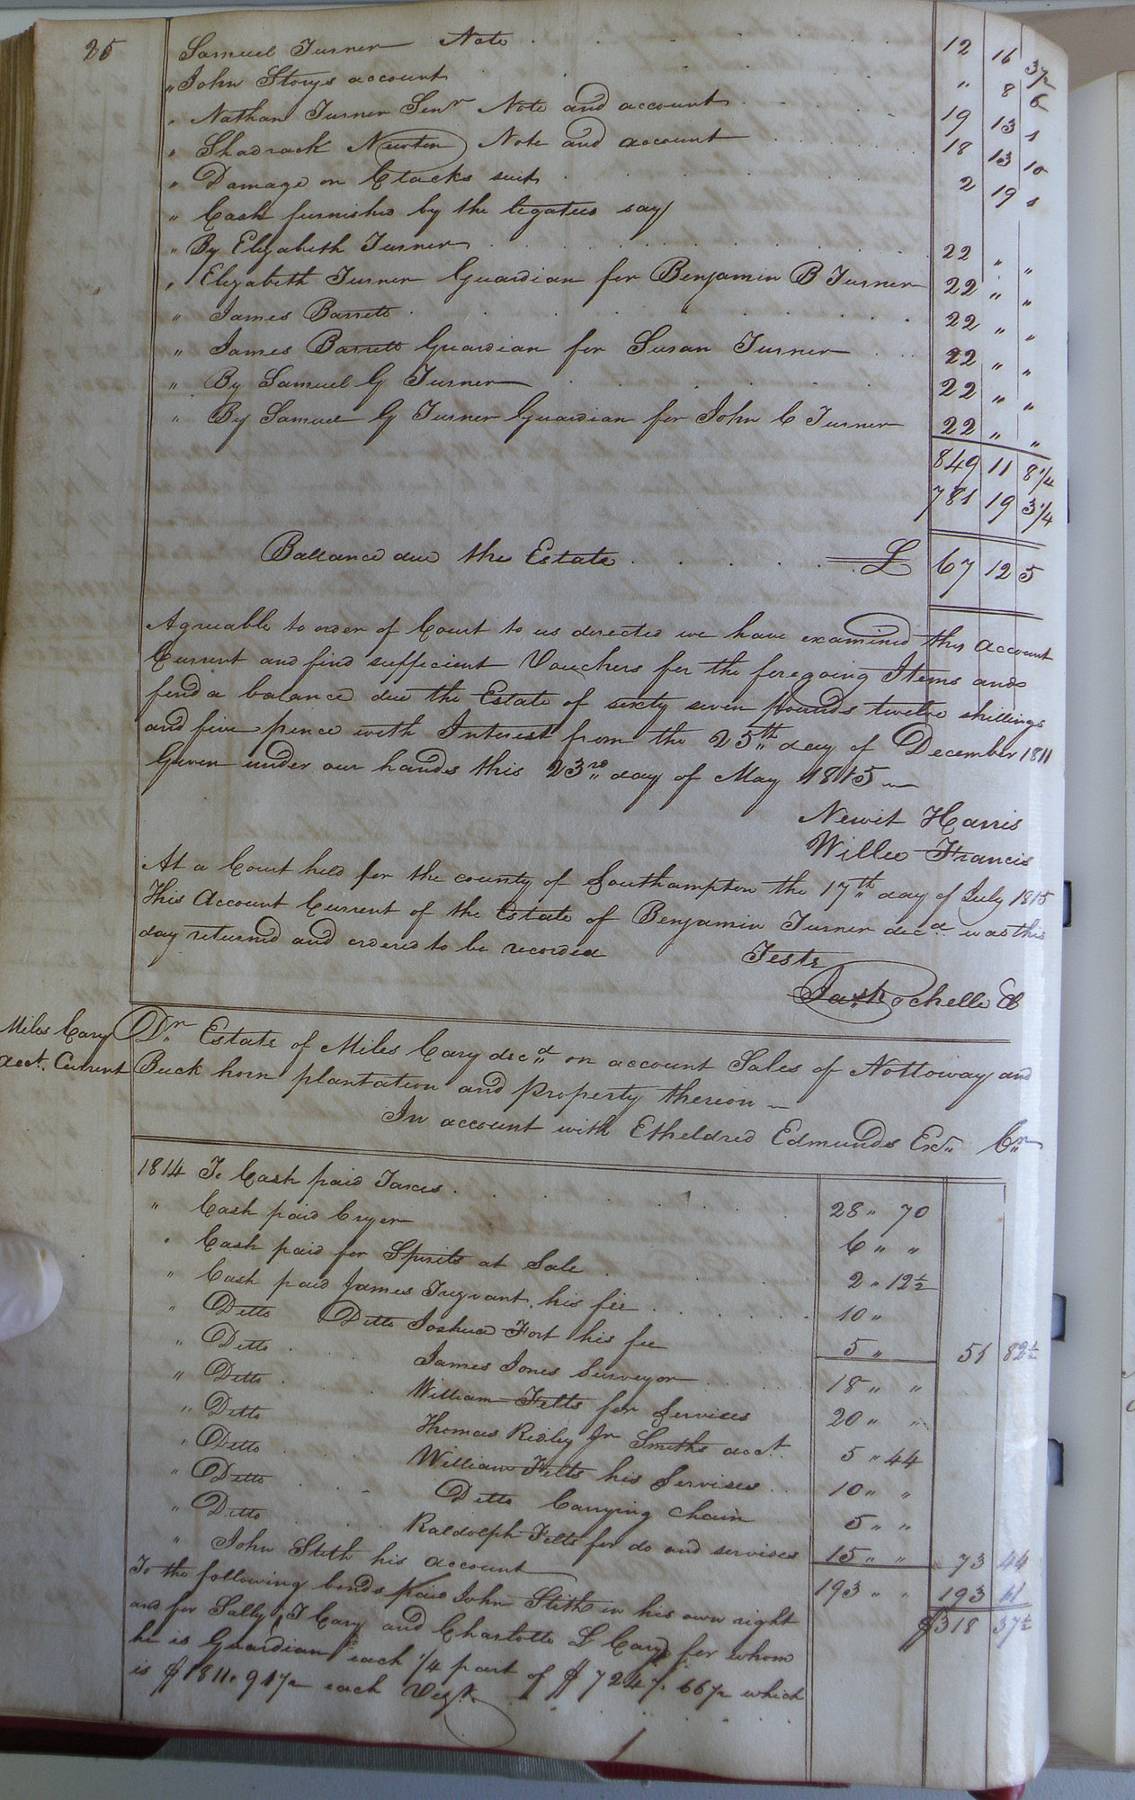 25 Samuel Turner Note 12 16 3 1/2
" John Storys account " 8 6
" Nathan Turner Senr Note and account 19 13 1
" Shadrack Newton Note and account 18 13 10
" Damage on Clacks suit 2 19 1
" Cash furnished by the legatees say
" By Elizabeth Turner 22 " "
" Elizabeth Turner Guardian for Benjamin B Turner 22 " "
" James Barrett 22 " "
" James Barrett Guardian for Susan Turner 22 " "
" By Samuel G Turner 22 " "
" By Samuel G Turner Guardian for John C Turner 22 " "
849 11 8 1/4
781 19 3 1/4
Ballance due the Estate £ 67 12 5
Agreeable to order of Court to us directed we have examined this account
Current and find sufficient Vouchers for the foregoing Items and
find a balance due the Estate of sixty seven pounds twelve shillings
and five pence with Interest from the 25th day of December 1811
Given under our hands this 23rd day of May 1815
Newit Harris
Willie Francis
At a Court held for the county of Southampton the 17th day of July 1815
This Account Current of the Estate of Benjamin Turner decd was this
day returned and ordered to be recorded
Teste
Jas Rochelle Ck
Miles Cary
acct. Current
Dr Estate of Miles Cary decd on account Sales of Nottoway and
Buck horn plantation and property thereon
In account with Etheldred Edmunds Exr Cr
1814 To Cash paid Taxes 28 " 70
" Cash paid Cryer 6 " "
" Cash paid for Spirits at Sale 2 " 12 1/2
" Cash paid James Trezvant his fee 10 "
" Ditto Ditto Joshua Fort his fee 5 " 51 82 1/2
" Ditto James Jones Surveyor 18 " "
" Ditto William Felts for Services 20 " "
" Ditto Thomas Ridley Jr Smiths acct. 5 " 44
" Ditto William Felts his Services 10 " "
" Ditto Ditto Carrying Chain 5 " "
" Ditto Raldolph Felts for do and services 15 " " 73 44
" John Stith his account 193 " " 193 11
To the following bonds paid John Stith in his own right $318 37 1/2
and for Sally T Cary and Charlotte L Cary for whom
he is Guardian each 1/4 part of $7247.66 1/2 which
is $1811.91 1/2 each Vizt